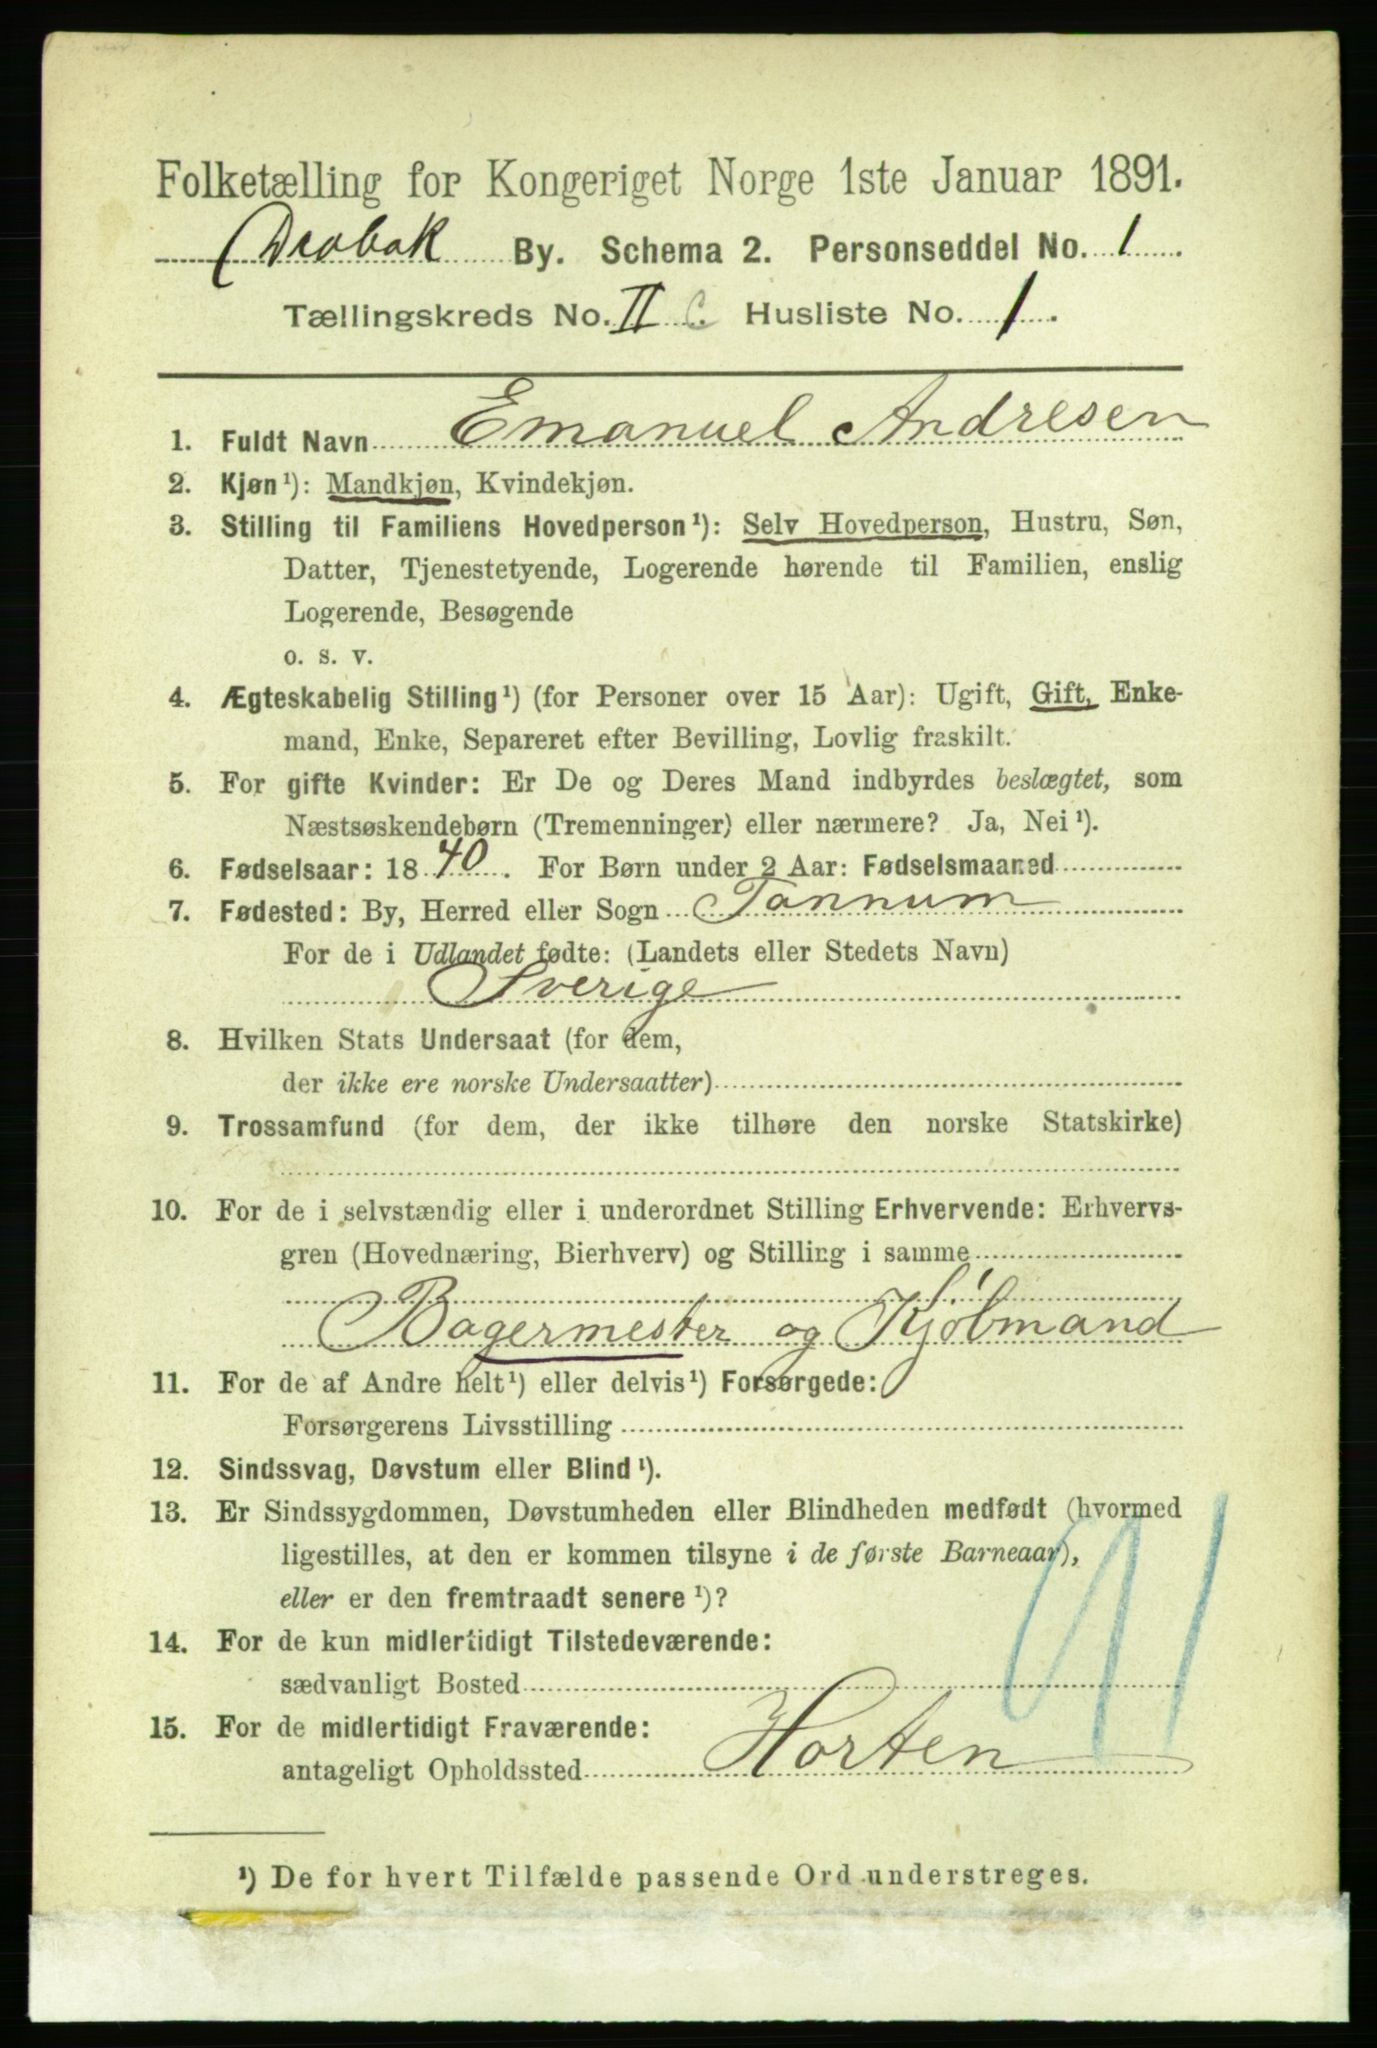 Folketælling for Kongeriget Norge 1ste Januar 1891.
Drøbak By. Schema 2. Personseddel No. 1
Tællingskreds No. II c. Husliste No. 1.
1. Fuldt Navn Emanuel Andresen
2. Kjøn¹): Mandkjøn, Kvindekjøn.
3. Stilling til Familiens Hovedperson¹): Selv Hovedperson, Hustru, Søn,
Datter, Tjenestetyende, Logerende hørende til Familien, enslig
Logerende, Besøgende
o. s. v.
4. Ægteskabelig Stilling¹) (for Personer over 15 Aar): Ugift, Gift, Enke-
mand, Enke, Separeret efter Bevilling, Lovlig fraskilt.
5. For gifte Kvinder: Er De og Deres Mand indbyrdes beslægtet, som
Næstsøskendebørn (Tremenninger) eller nærmere? Ja, Nei¹).
6. Fødselsaar: 1840. For Børn under 2 Aar: Fødselsmaaned
7. Fødested: By, Herred eller Sogn Tannum
For de i Udlandet fødte: (Landets eller Stedets Navn)
Sverige
8. Hvilken Stats Undersaat (for dem,
der ikke ere norske Undersaatter)
9. Trossamfund (for dem, der ikke tilhøre den norske Statskirke)
10. For de i selvstændig eller i underordnet Stilling Erhvervende: Erhvervs-
gren (Hovednæring, Bierhverv) og Stilling i samme
Bagermester og Kjøbmand
11. For de af Andre helt¹) eller delvis¹) Forsørgede:
Forsørgerens Livsstilling
12. Sindssvag, Døvstum eller Blind¹).
13. Er Sindssygdommen, Døvstumheden eller Blindheden medfødt (hvormed
ligestilles, at den er kommen tilsyne i de første Barneaar),
eller er den fremtraadt senere¹)?
14. For de kun midlertidigt Tilstedeværende:
sædvanligt Bosted
15. For de midlertidigt Fraværende:
antageligt Opholdssted Horten
¹) De for hvert Tilfælde passende Ord understreges.